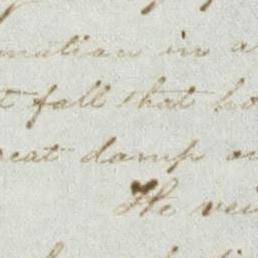 mation in a
t fall that ho
reat damp a
He vei